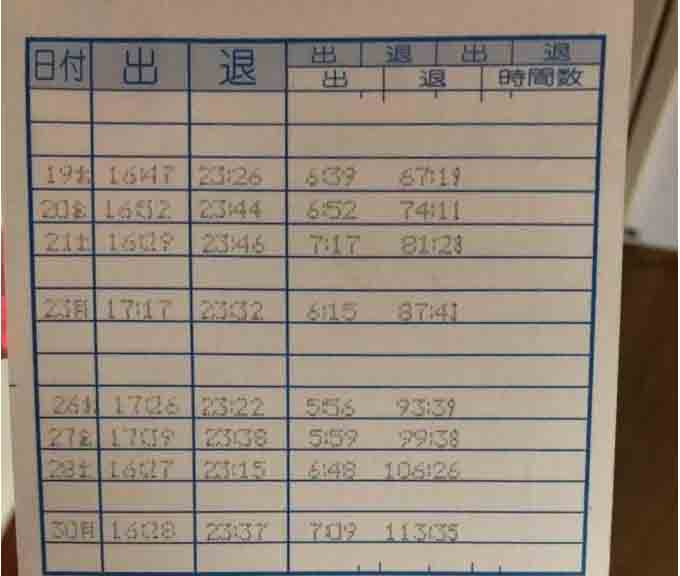 日付 出 退 出 退 出 退
出 退 時間数
19木 16:47 23:26 6:39 67:19
20金 16:52 23:44 6:52 74:11
21土 16:29 23:46 7:17 81:28
23月 17:17 23:32 6:15 87:43
26木 17:26 23:22 5:56 93:39
27金 17:39 23:38 5:59 99:38
28土 16:27 23:15 6:48 106:26
30月 16:28 23:37 7:09 113:35